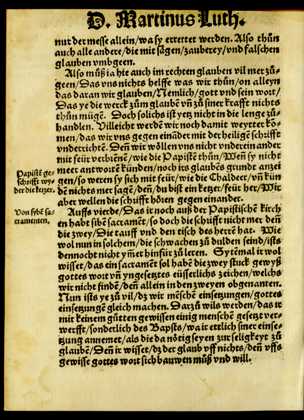 D. Martinus Luth.
nut der messe allein/wa sy errettet werden. Also thün
auch alle andere/die mit sägen/zauberey/vnd falschen
glauben vmbgeen.
Also müß ia hie auch im rechten glauben vil mer zü-
geen/Das vns nichts helffe was wir thün/on alleyn
das daran wir glauben/Nemlich/gott vnd sein wort/
Das ye die werck züm glaubē vn zü siner krafft nichts
thün mügē. Doch solichs ist yetz nicht in die lenge zü-
handlen. Villeicht werdē wir noch damit weyter kō-
men/das wir vns gegen eināder mit der heiligē schifft
vnderrichtē. Deñ wir wöllen vns nicht vnderein ander
mit feür verbiēnē/wie die Papistē thün/Weñ sy nicht
meer antwort kündeñ/noch ires glaubēs grunde anzei
gen/so weren sy sich mit feür/wie die Chaldeer/vn kün
dē nichts mer sagē/deñ/du bist ein ketzer/feür her/Wir
aber wellen die schifft hören gegen einander.
Papistē ge-
schifft wy-
der die ketzer.
Auffs vierde/Das ir noch auß der Papistischē kirch
en habt sibē sacramēt/so doch die schifft nicht mer deñ
die zwey/Die tauff vnd den tisch des herrē hat. Wie
wol nun in solchem/die schwachen zü dulden seind/ists
dennocht nicht zymet hin für zü leren. Sytemal ir wol
wisset/das ein sacramēt sol habē die zwey stuck gewyß
gottes wort vn yngesetztes eüsserlichs zeichen/welchs
wir nicht findē/deñ allein in den zweyen obgenanten.
Von sybē sa-
cramenten.
Nun ists ye zü vil/dz wir mensche einsetzungen/gottes
einsetzungē gleich machen. Darzü wils werden/das ir
mit keinem gütten gewissen einig menschē gesetzt ver-
werfft/sonderlich des Bapsts/wa ir ettlich siner einse-
tzung annemet/als die da nötig seyen zur seligkeyt zü
glaubē/Deñ ir wisset/dz der glaub vff nichts/deñ vffs
gewisse gottes wort sich bauwen müß vnd will.